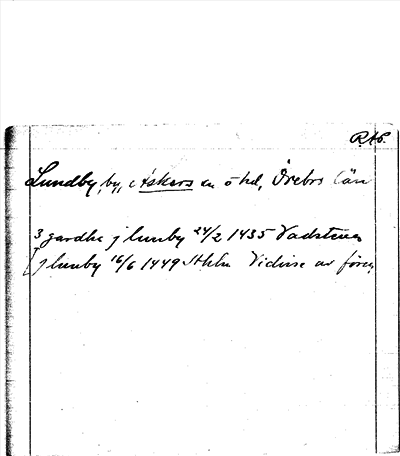 RAP.
Lundby, by, i Askers sn o hd, Örebro län
3 gardha j lunby 24/2 1435 Vadstena
[j lunby 16/6 1449 Sthlm Vidisse avföreg